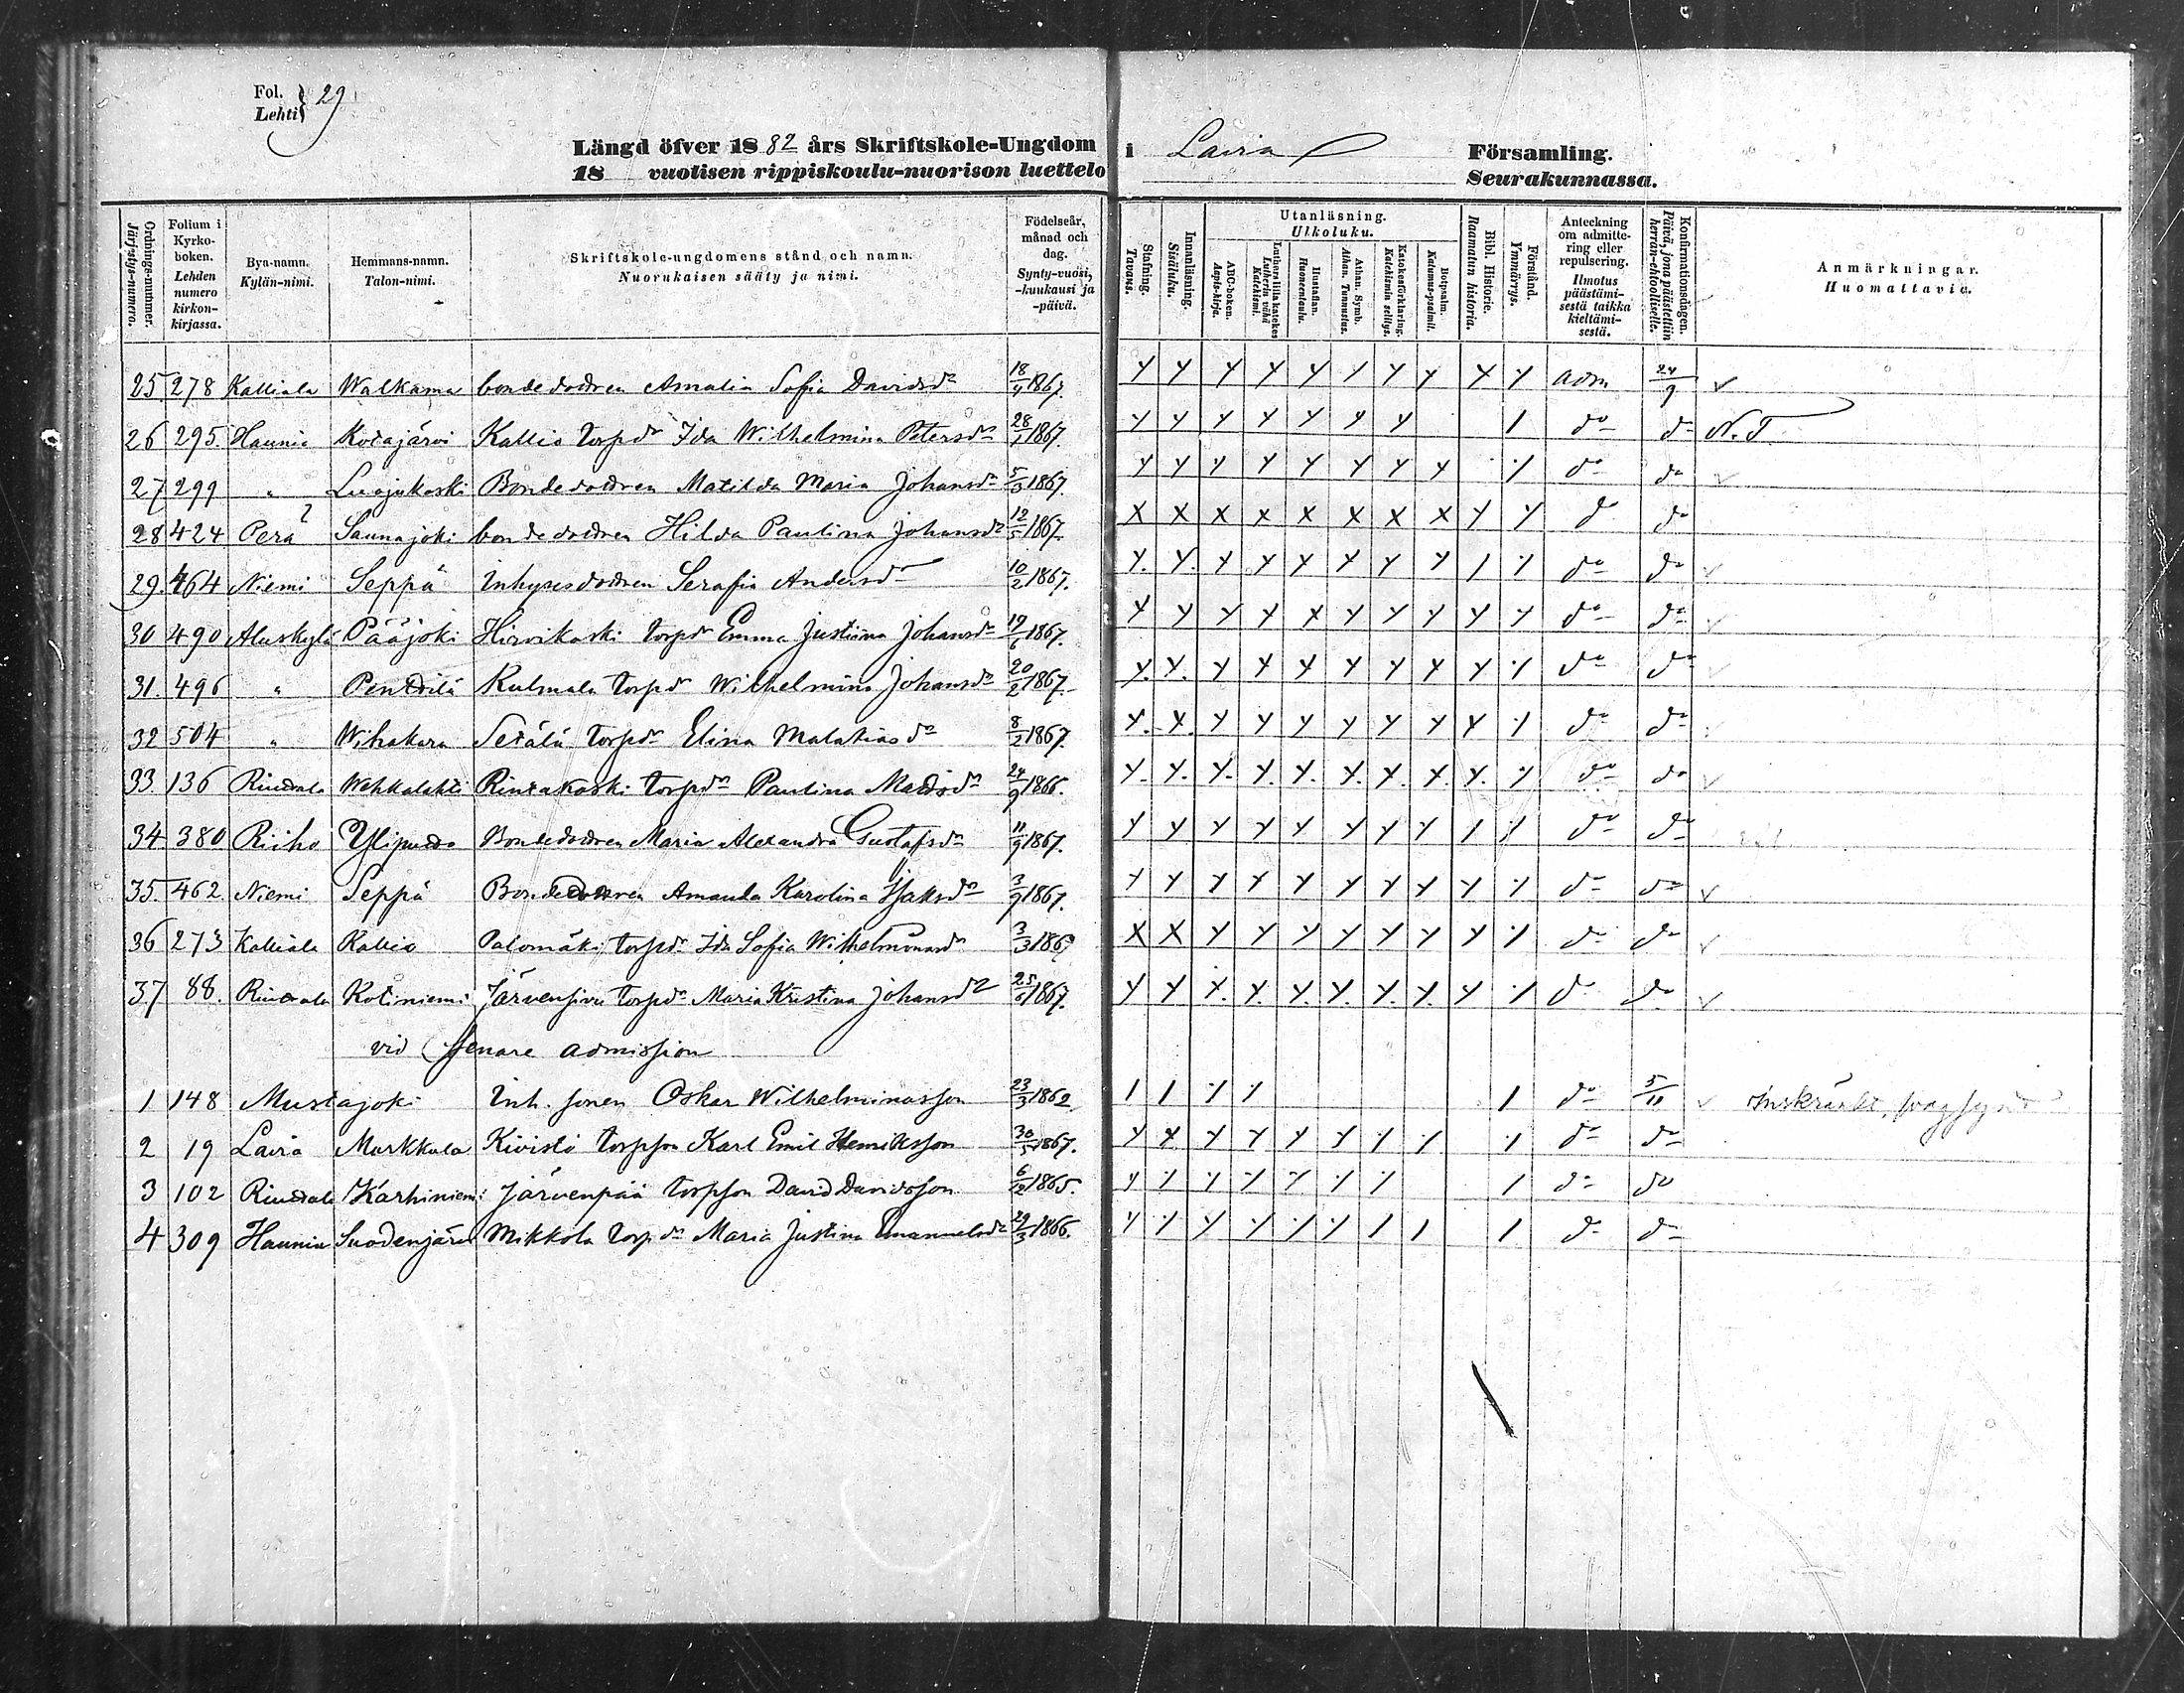 Fol. } 29
Lehti
Längd öfver 1882 års Skriftskole-Ungdom i Lavia Församling.
18 vuotisen rippiskoulu-nuorison luettelo Seurakunnassa.
Ordnings-nummer. Järjestys-numero.
Folium i Kyrko-boken. Lehden numero kirkon-kirjassa.
Bya-namn. Kylän-nimi.
Hemmans-namn. Talon-nimi.
Skriftskole-ungdomens stånd och namn. Nuorukaisen sääty ja nimi.
Födelseår, månad och dag. Synty-vuosi, -kuukausi ja -päivä.
Stafning. Tavaus.
Innanläsning. Sisäluku.
Utanläsning. Ulkoluku.
ABC-boken. Aapis-kirja.
Luthers lilla katekes Lutherin vähä Katekismi.
Hustaflan. Huoneentaulu.
Athan. Symb. Athan. Tunnustus.
Katekesförklaring. Katekismin selitys.
Botpsalm. Katumus-psalmit.
Bibl. Historie. Raamatun historia.
Förstånd. Ymmärrys.
Anteckning om admittering eller repulsering. Ilmotus päästämisestä taikka kieltämisestä.
Konfirmationsdagen. Päivä, jona päästettiin herrän-ehtoolliselle.
Anmärkningar. Huomattavia.
25 278 Kalliala Walkama bondedottren Amalia Sofia Davidsdr 18/9 1867. adm 24/9
26 295. Haunia Kotajärvi Kallio torpdr Ida Wilhelmina Petersdr 28/1 1867. do do N.T.
27 299 " Luojukoski Bondedottren Matilda Maria Johansdr 5/3 1867. do do
28 424 Perä Saunajoki bondedottren Hilda Paulina Johansdr 12/5 1867. do do
29. 464 Niemi Seppä Inhysesdottren Serafia Andersdr 10/2 1867. do do
30 490 Aluskylä Pääjoki Hirvikoski torpdr Emma Justiina Johansdr 19/6 1867. do do
31. 496 " Penttilä Kulmala torpdr Wilhelmina Johansdr 20/2 1867. do do
32 504 " Wihakara Setälä torpdr Elina Malakiasdr 8/2 1867. do do
33. 136 Riuttala Wehkalahti Rintakoski torpdr Paulina Mattsdr 24/9 1866. do do
34 380 Riiho Yliputto Bondedottren Maria Alexandra Gustafsdr 11/9 1867. do do
35. 462. Niemi Seppä Bondedottren Amanda Karolina Isaksdr 3/9 1867. do do
36 273 Kalliala Kallio Palomäki torpdr Ida Sofia Wilhelminasdr 3/3 1867 do do
37 88. Riuttala Kotiniemi Järvensivu torpdr Maria Kristina Johansdr 25/6 1867. do do
vid senare admission
1 148 Mustajoki Inh. sonen Oskar Wilhelminasson 23/3 1862 do 5/11 Inskränkt,
2 19 Lavia Markkula Kivistö torpson Karl Emil Henriksson 30/5 1867. do do
3 102 Riuttala Karhiniemi Järvenpää torpson David Davidsson 6/12 1865. do do
4 309 Haunia Suodenjärvi Mikkola torpdr Maria Justina Emanuelsdr 29/3 1866. do do